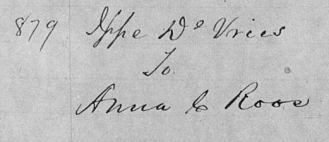 879 Ippe De Vries
To
Anna C Roos